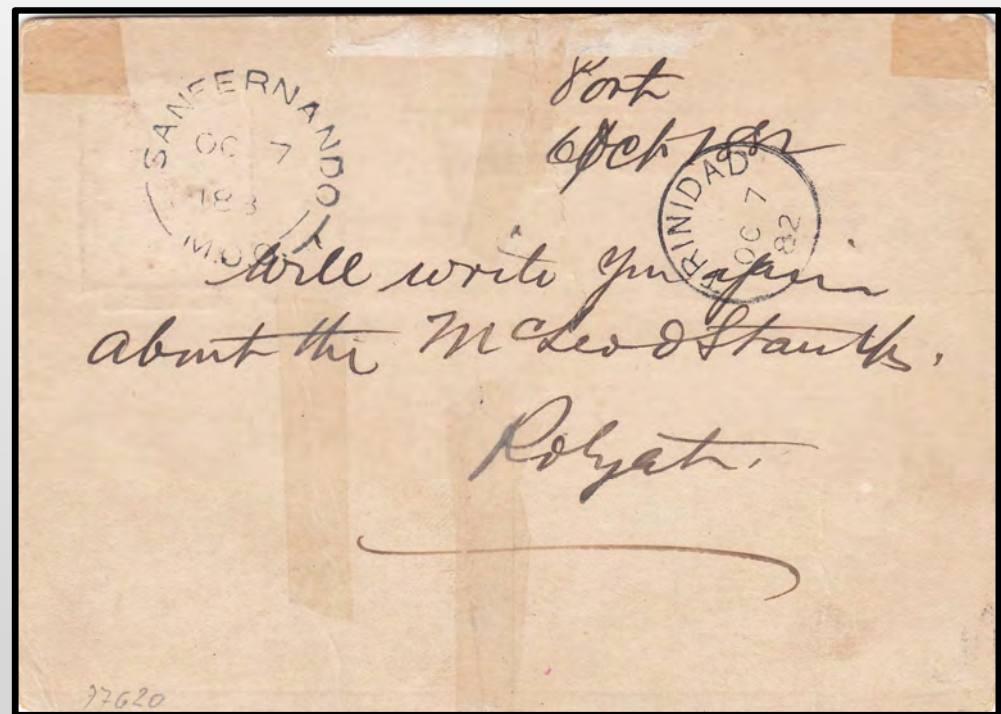 SAN FERNANDO
OC 7
188
M.O.O
Port
6 Oct 1882
TRINIDAD
OC 7
82
Will write you again
about the McLeod Stamps.
Rolyat.
27620